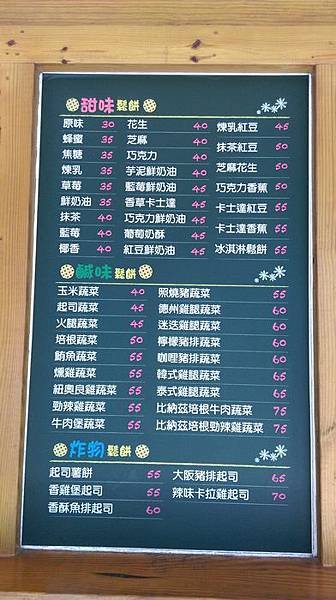 甜味鬆餅
原味 30 花生 40 煉乳紅豆 45
蜂蜜 35 芝麻 40 抹茶紅豆 50
焦糖 35 巧克力 40 芝麻花生 50
煉乳 35 芋泥鮮奶油 45 巧克力香蕉 50
草莓 35 藍莓鮮奶油 45 卡士達紅豆 55
鮮奶油 35 香草卡士達 45 卡士達香蕉 55
抹茶 40 巧克力鮮奶油 45 冰淇淋鬆餅 55
藍莓 40 葡萄奶酥 45
椰香 40 紅豆鮮奶油 45
鹹味鬆餅
玉米蔬菜 40 照燒豬蔬菜 55
起司蔬菜 45 德州雞腿蔬菜 60
火腿蔬菜 45 迷迭雞腿蔬菜 60
培根蔬菜 50 檸檬豬排蔬菜 60
鮪魚蔬菜 55 咖哩豬排蔬菜 60
燻雞蔬菜 55 韓式雞腿蔬菜 60
紐奧良雞蔬菜 55 泰式雞腿蔬菜 60
勁辣雞蔬菜 55 比納茲培根牛肉蔬菜 75
牛肉堡蔬菜 55 比納茲培根勁辣雞蔬菜 75
炸物鬆餅
起司薯餅 55 大阪豬排起司 65
香雞堡起司 55 辣味卡拉雞起司 70
香酥魚排起司 60